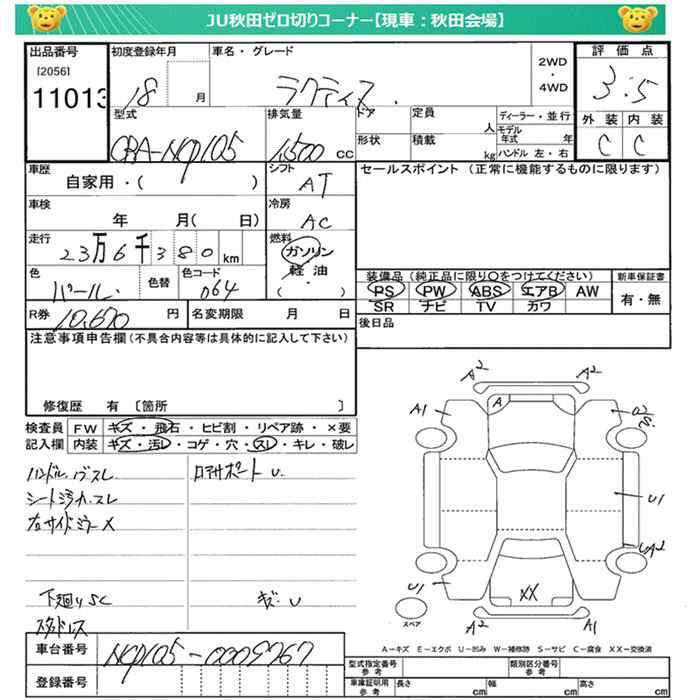 JU秋田ゼロ切りコーナー【現車：秋田会場】
出品番号 初度登録年月 車名・グレード 2WD・4WD 評価点
[2056]
11013 18 月 ラクティス 3.5
型式 排気量 ドア 定員 人 ディーラー・並行 外装 内装
CBA-NCP105 1,500 cc 形状 積載 kg モデル年式 年 ハンドル 左・右 C C
車歴 シフト セールスポイント（正常に機能するものに限ります）
自家用・（ ） AT
車検 冷房
年 月（ 日） AC
走行 燃料
23万6千380km ガソリン
軽油
（ ・ ）
装備品（純正品に限り○をつけてください） 新車保証書
色 色替 色コード PS PW ABS エアB AW 有・無
パール 064 SR ナビ TV カワ
R券 10,670 円 名変期限 月 日 後日品
注意事項申告欄（不具合内容等は具体的に記入して下さい）
修復歴 有 〔箇所 〕
検査員 FW キズ・飛石・ヒビ割・リペア跡・×要
記入欄 内装 キズ・汚レ・コゲ・穴・スレ・キレ・破レ
ハンドル スレ ロアサポート U
シート スレ
右サイドミラー X
下廻り SC
スタッドレス
A2 A2
A1 A
U1
A2
U1
XX
スペア A2 A1
A－キズ E－エクボ U－凹み W－補修跡 S－サビ C－腐食 XX－交換済
車台番号 NCP105-0009767
登録番号
型式指定番号 参考 類別区分番号 参考
車庫証明用 参考 長さ cm 幅 cm 高さ cm